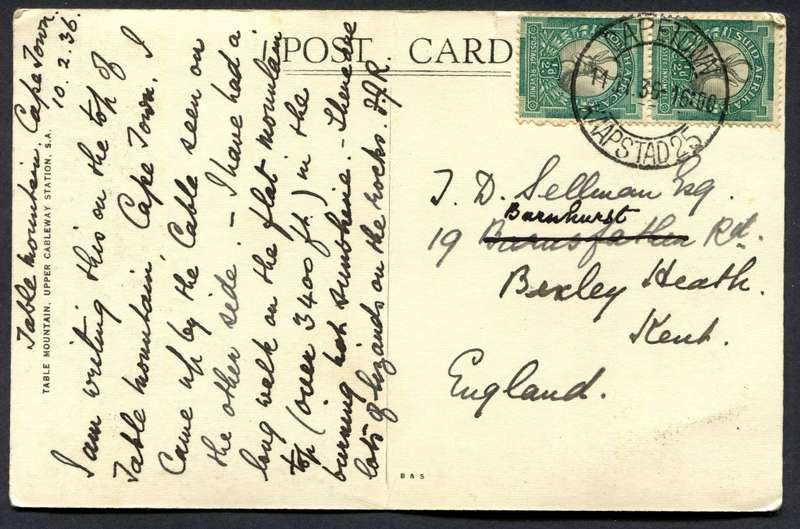 POST CARD
Table Mountain. Cape Town.
10.2.36.
I am writing this on the top of
Table Mountain, Cape Town. I
Came up by the Cable seen on
the other side. - I have had a
long walk on the flat mountain
top (over 3400 ft.) in the
burning hot sunshine. - There are
lots of lizards on the rocks.
TABLE MOUNTAIN, UPPER CABLEWAY STATION, S.A.
B & S
CAPE TOWN
36-16:00
KAAPSTAD 25
U.S.AFRIKA
D. Sellman Esq.
Barnhurst
19 Barnsfather Rd.
Bexley Heath.
Kent.
England.